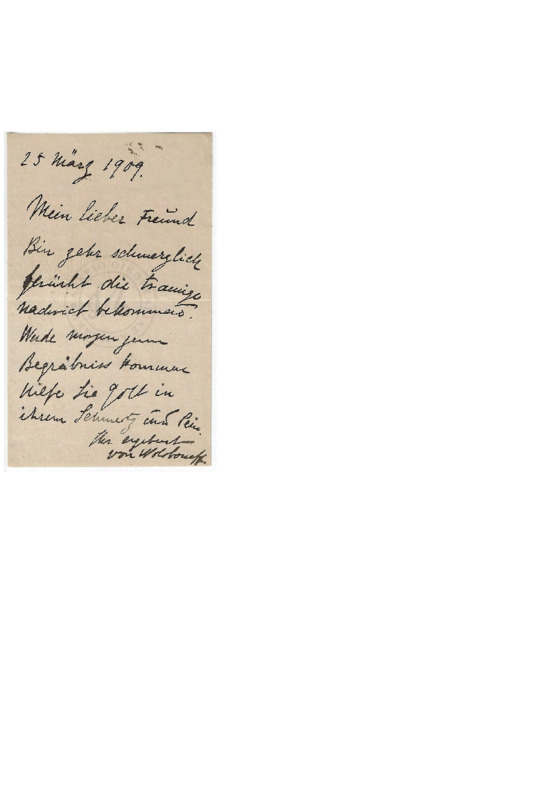 25 März 1909.
Mein lieber Freund
Bin sehr schmerzlich
berührt die traurige
nachricht bekommen.
Werde morgen zum
Begräbniss kommen
Hilfe Sie Gott in
ihrem Schmertz und
Ihr ergebenst
von